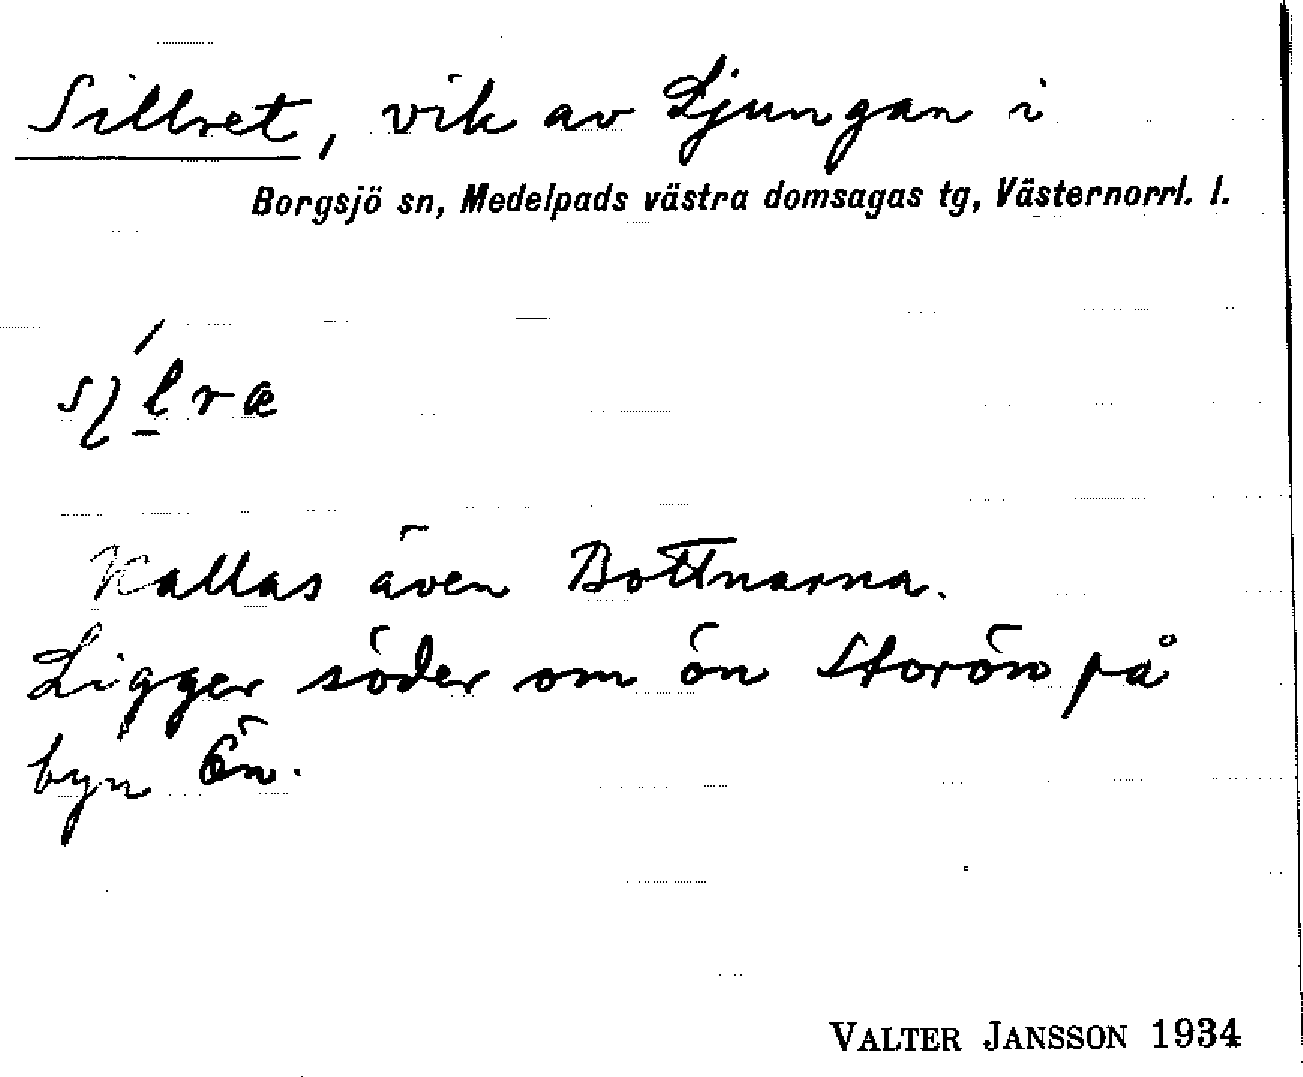 Sillret, vik av Ljungan i
Borgsjö sn, Medelpads västra domsagas tg, Västernorrl. l.
Kallas även Bottnarna.
Ligger söder om ön Storön på
byn Ön.
VALTER JANSSON 1934